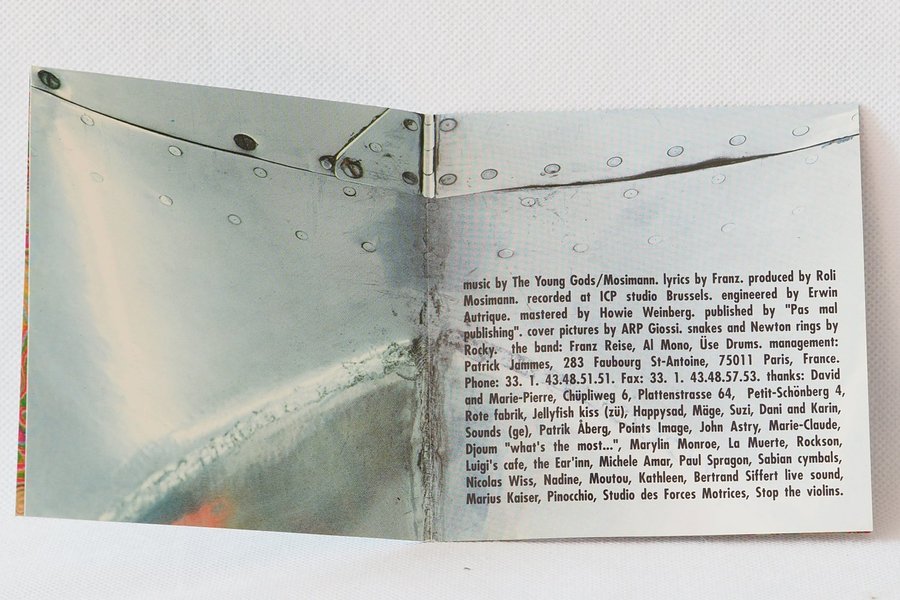 music by The Young Gods/Mosimann. lyrics by Franz. produced by Roli
Mosimann. recorded at ICP studio Brussels. engineered by Erwin
Autrique. mastered by Howie Weinberg. published by "Pas mal
publishing". cover pictures by ARP Giossi. snakes and Newton rings by
Rocky. the band: Franz Reise, Al Mono, Üse Drums. management:
Patrick Jammes, 283 Faubourg St-Antoine, 75011 Paris, France.
Phone: 33. 1. 43.48.51.51. Fax: 33. 1. 43.48.57.53. thanks: David
and Marie-Pierre, Chüpliweg 6, Plattenstrasse 64, Petit-Schönberg 4,
Rote fabrik, Jellyfish kiss (zü), Happysad, Mäge, Suzi, Dani and Karin,
Sounds (ge), Patrik Åberg, Points Image, John Astry, Marie-Claude,
Djoum "what's the most...", Marylin Monroe, La Muerte, Rockson,
Luigi's cafe, the Ear'inn, Michele Amar, Paul Spragon, Sabian cymbals,
Nicolas Wiss, Nadine, Moutou, Kathleen, Bertrand Siffert live sound,
Marius Kaiser, Pinocchio, Studio des Forces Motrices, Stop the violins.